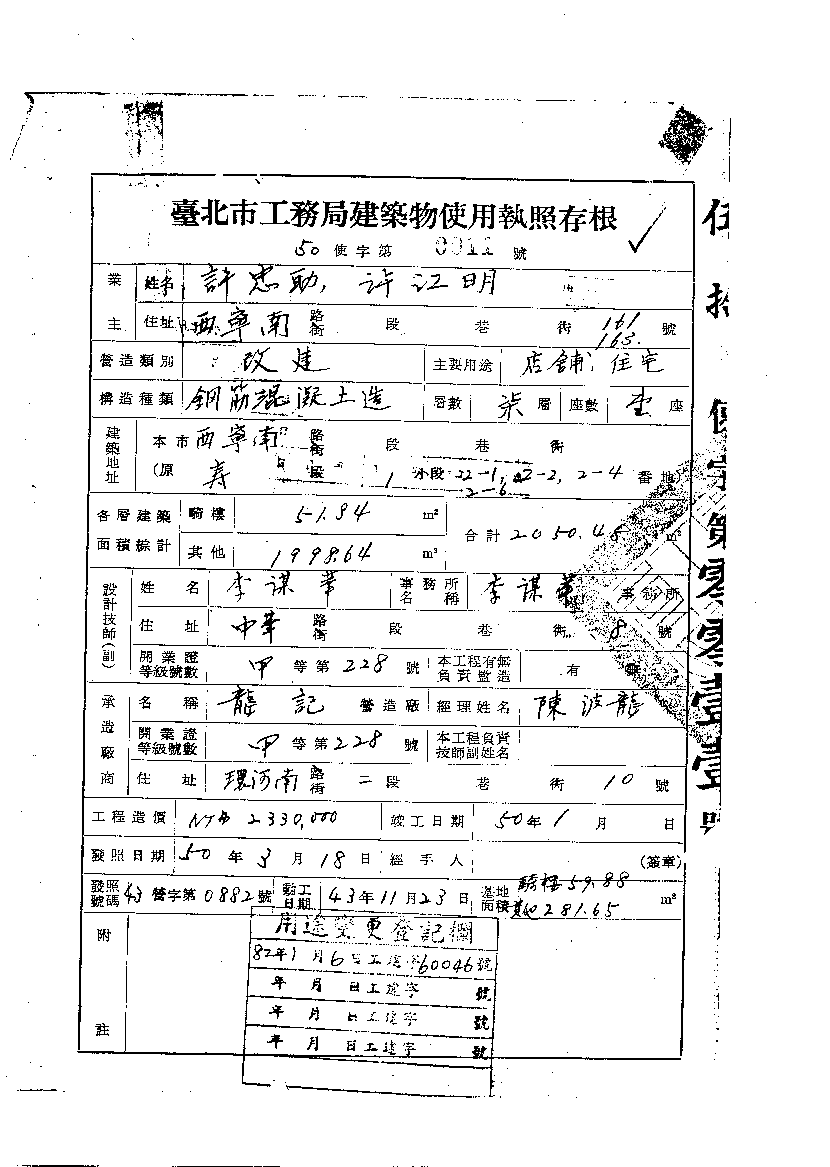 臺北市工務局建築物使用執照存根
50 使字第 0011 號
業主 姓名 許忠助, 许江明
住址 西寧南 路街 段 巷 衖 161 163 號
營造類別 改建 主要用途 店舖, 住宅
構造種類 鋼筋混凝土造 層數 柒層 座數 壹座
建築地址 本市 西寧南 路街 段 巷 衖
(原 寿 段 1 小段 22-1, 2-2, 2-4 番地)
2-6
各層建築面積綜計 騎樓 51.84 m² 合計 2050.48 m²
其他 1998.64 m²
設計技師(副) 姓名 李謀華 事務所名稱 李謀華 事務所
住址 中華 路街 段 巷 衖 8 號
開業證等級號數 甲等第 228 號 本工程有無負責監造 有
承造廠商 名稱 龍記 營造廠 經理姓名 陳波龍
開業證等級號數 甲等第 228 號 本工程負責技師副姓名
住址 環河南 路街 二段 巷 衖 10 號
工程造價 NT$ 2330,000 竣工日期 50年 1 月 日
發照日期 50 年 3 月 18 日 經手人 (簽章)
發照號碼 43 營字第 0882 號 動工日期 43年11月23日 基地面積 騎樓59.88 其他281.65 m²
附註
用途變更登記欄
82年1月6日工建字60046號
年 月 日工建字 號
年 月 日工建字 號
年 月 日工建字 號
伍拾 使字第零零壹壹號